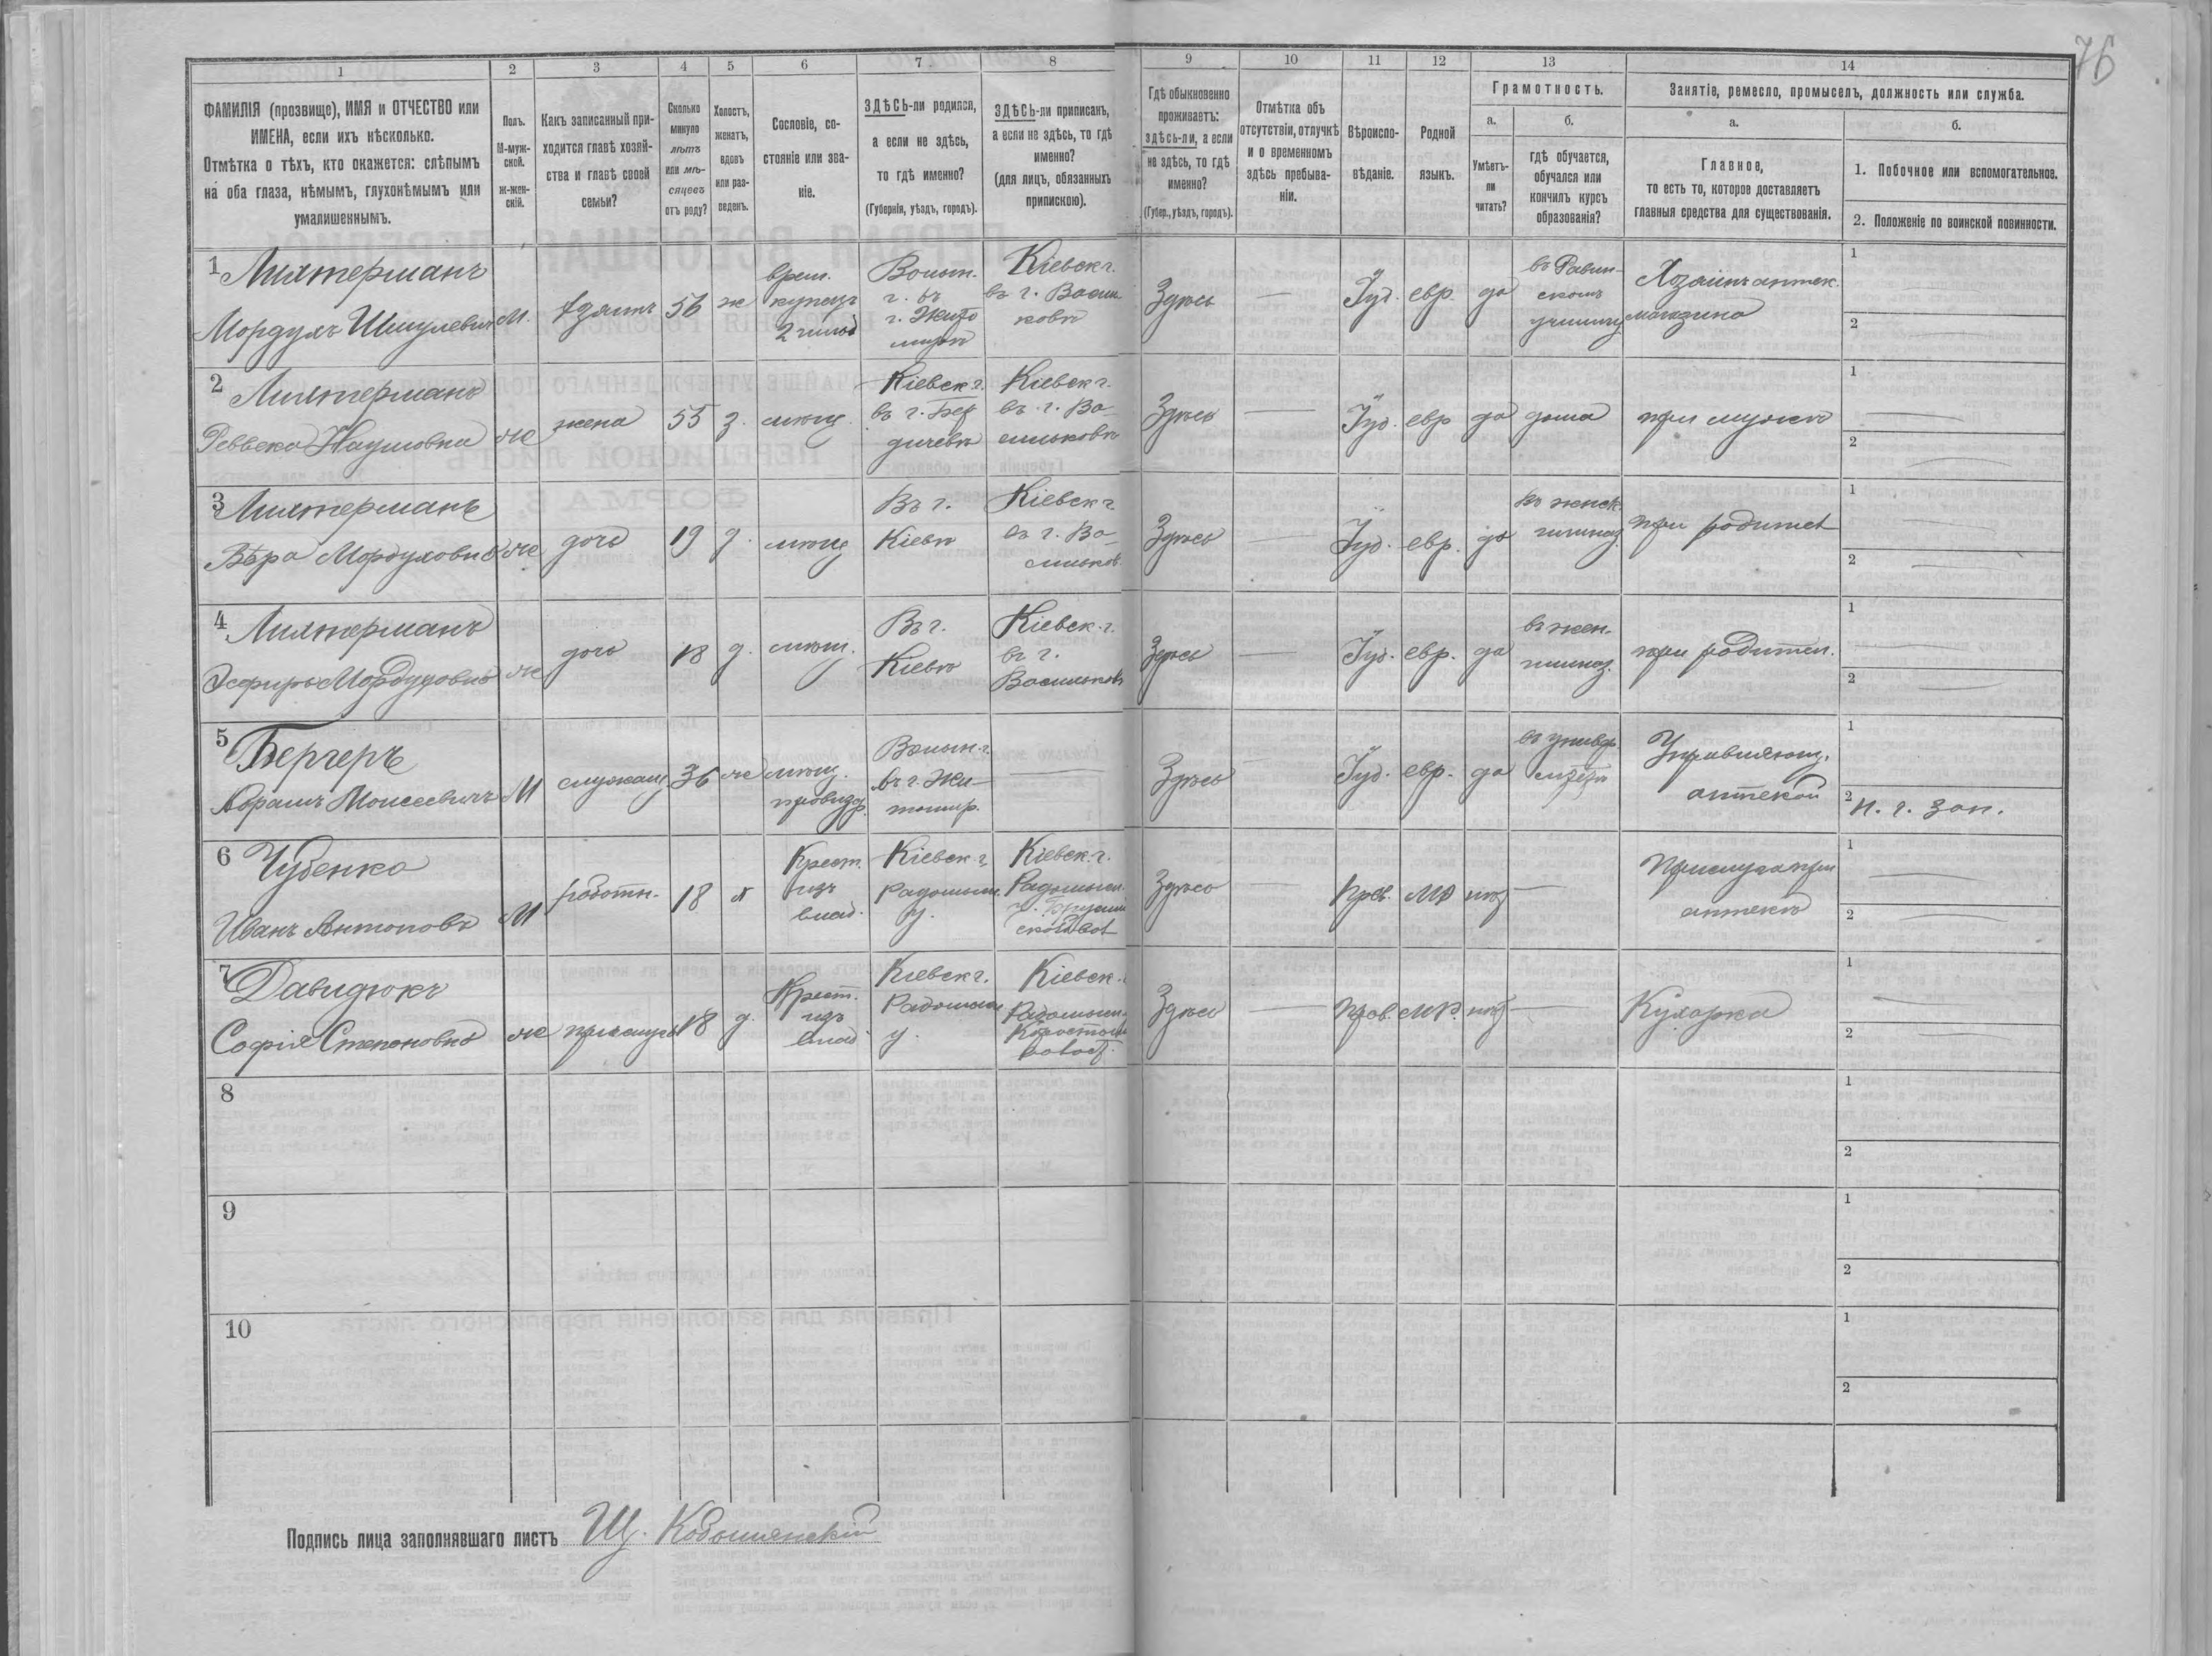 76
1 2 3 4 5 6 7 8 9 10 11 12 13 14
ФАМИЛІЯ (прозвище), ИМЯ и ОТЧЕСТВО или
ИМЕНА, если ихъ нѣсколько.
Отмѣтка о тѣхъ, кто окажется: слѣпымъ
на оба глаза, нѣмымъ, глухонѣмымъ или
умалишеннымъ.
Полъ.
М-муж-
ской.
ж-жен-
скій.
Какъ записанный при-
ходится главѣ хозяй-
ства и главѣ своей
семьи?
Сколько
минуло
лѣтъ
или мѣ-
сяцевъ
отъ роду?
Холостъ,
женатъ,
вдовъ
или раз-
веденъ.
Сословіе, со-
стояніе или зва-
ніе.
ЗДѢСЬ-ли родился,
а если не здѣсь,
то гдѣ именно?
(Губернія, уѣздъ, городъ).
ЗДѢСЬ-ли приписанъ,
а если не здѣсь, то гдѣ
именно?
(для лицъ, обязанныхъ
припискою).
Гдѣ обыкновенно
проживаетъ:
здѣсь-ли, а если
не здѣсь, то гдѣ
именно?
(Губер., уѣздъ, городъ).
Отмѣтка объ
отсутствіи, отлучкѣ
и о временномъ
здѣсь пребыва-
ніи.
Вѣроиспо-
вѣданіе.
Родной
языкъ.
Грамотность.
а.
Умѣетъ-
ли
читать?
б.
гдѣ обучается,
обучался или
кончилъ курсъ
образованія?
Занятіе, ремесло, промыселъ, должность или служба.
а.
Главное,
то есть то, которое доставляетъ
главныя средства для существованія.
б.
1. Побочное или вспомогательное.
2. Положеніе по воинской повинности.
1
Мордухъ Шмулевич
М.
56
ж
врем.
купецъ
2 гильд
Волын.
г. въ
г. Жито
мирѣ
Кіевск г.
въ г. Васи
ковѣ
Здѣсь
Іуд.
евр.
да
въ Равин-
скомъ
училищ
Хозяинъ аптек.
магазина
1
2
2
Реввека Наумовна
ж
жена
55
з.
Кіевск г.
въ г. Бер
дичевѣ
Кіевск г.
въ г. Ва
сильковѣ
Здѣсь
Іуд.
евр
да
дома
при мужѣ
1
2
3
Вѣра Мордуховна
ж
дочь
19
д.
Въ г.
Кіевѣ
Кіевск г
въ г. Ва
сильков.
Здѣсь
Іуд.
евр.
да
въ женск
гимназ.
при родител
1
2
4
Эсфирь Мордуховна
ж
дочь
18
д.
Въ г.
Кіевѣ
Кіевск. г.
въ г.
Васильковѣ
Здѣсь
Іуд.
евр.
да
въ жен.
гимназ.
при родител.
1
2
5 Бергеръ
Абрамъ Моисеевичъ
М
служащ.
36
ж
провизор.
Волын. г.
въ г. Жи-
томир.
Здѣсь
Іуд.
евр.
да
въ универ
ситетѣ
Управляющ.
аптекой
1
2 н. г. зап.
6 Чубенко
Иванъ Антоновъ
М
работн.
18
х
Крест.
изъ
влад.
Кіевск г.
Радомысл.
у.
Кіевск. г.
Радомысл.
у. Брусил
ской вол
Здѣсь
Прав.
МР
нѣт
Прислуга при
аптекѣ
1
2
7 Давидюкъ
Софія Степановна
ж
прислуга
18
д.
Крест.
изъ
влад
Кіевск г.
Радомысл
у.
Кіевск.
Радомысл.
волост.
Здѣсь
Прав.
МР.
нѣт
Кухарка
1
2
8
1
2
9
1
2
10
1
2
Подпись лица заполнявшаго листъ